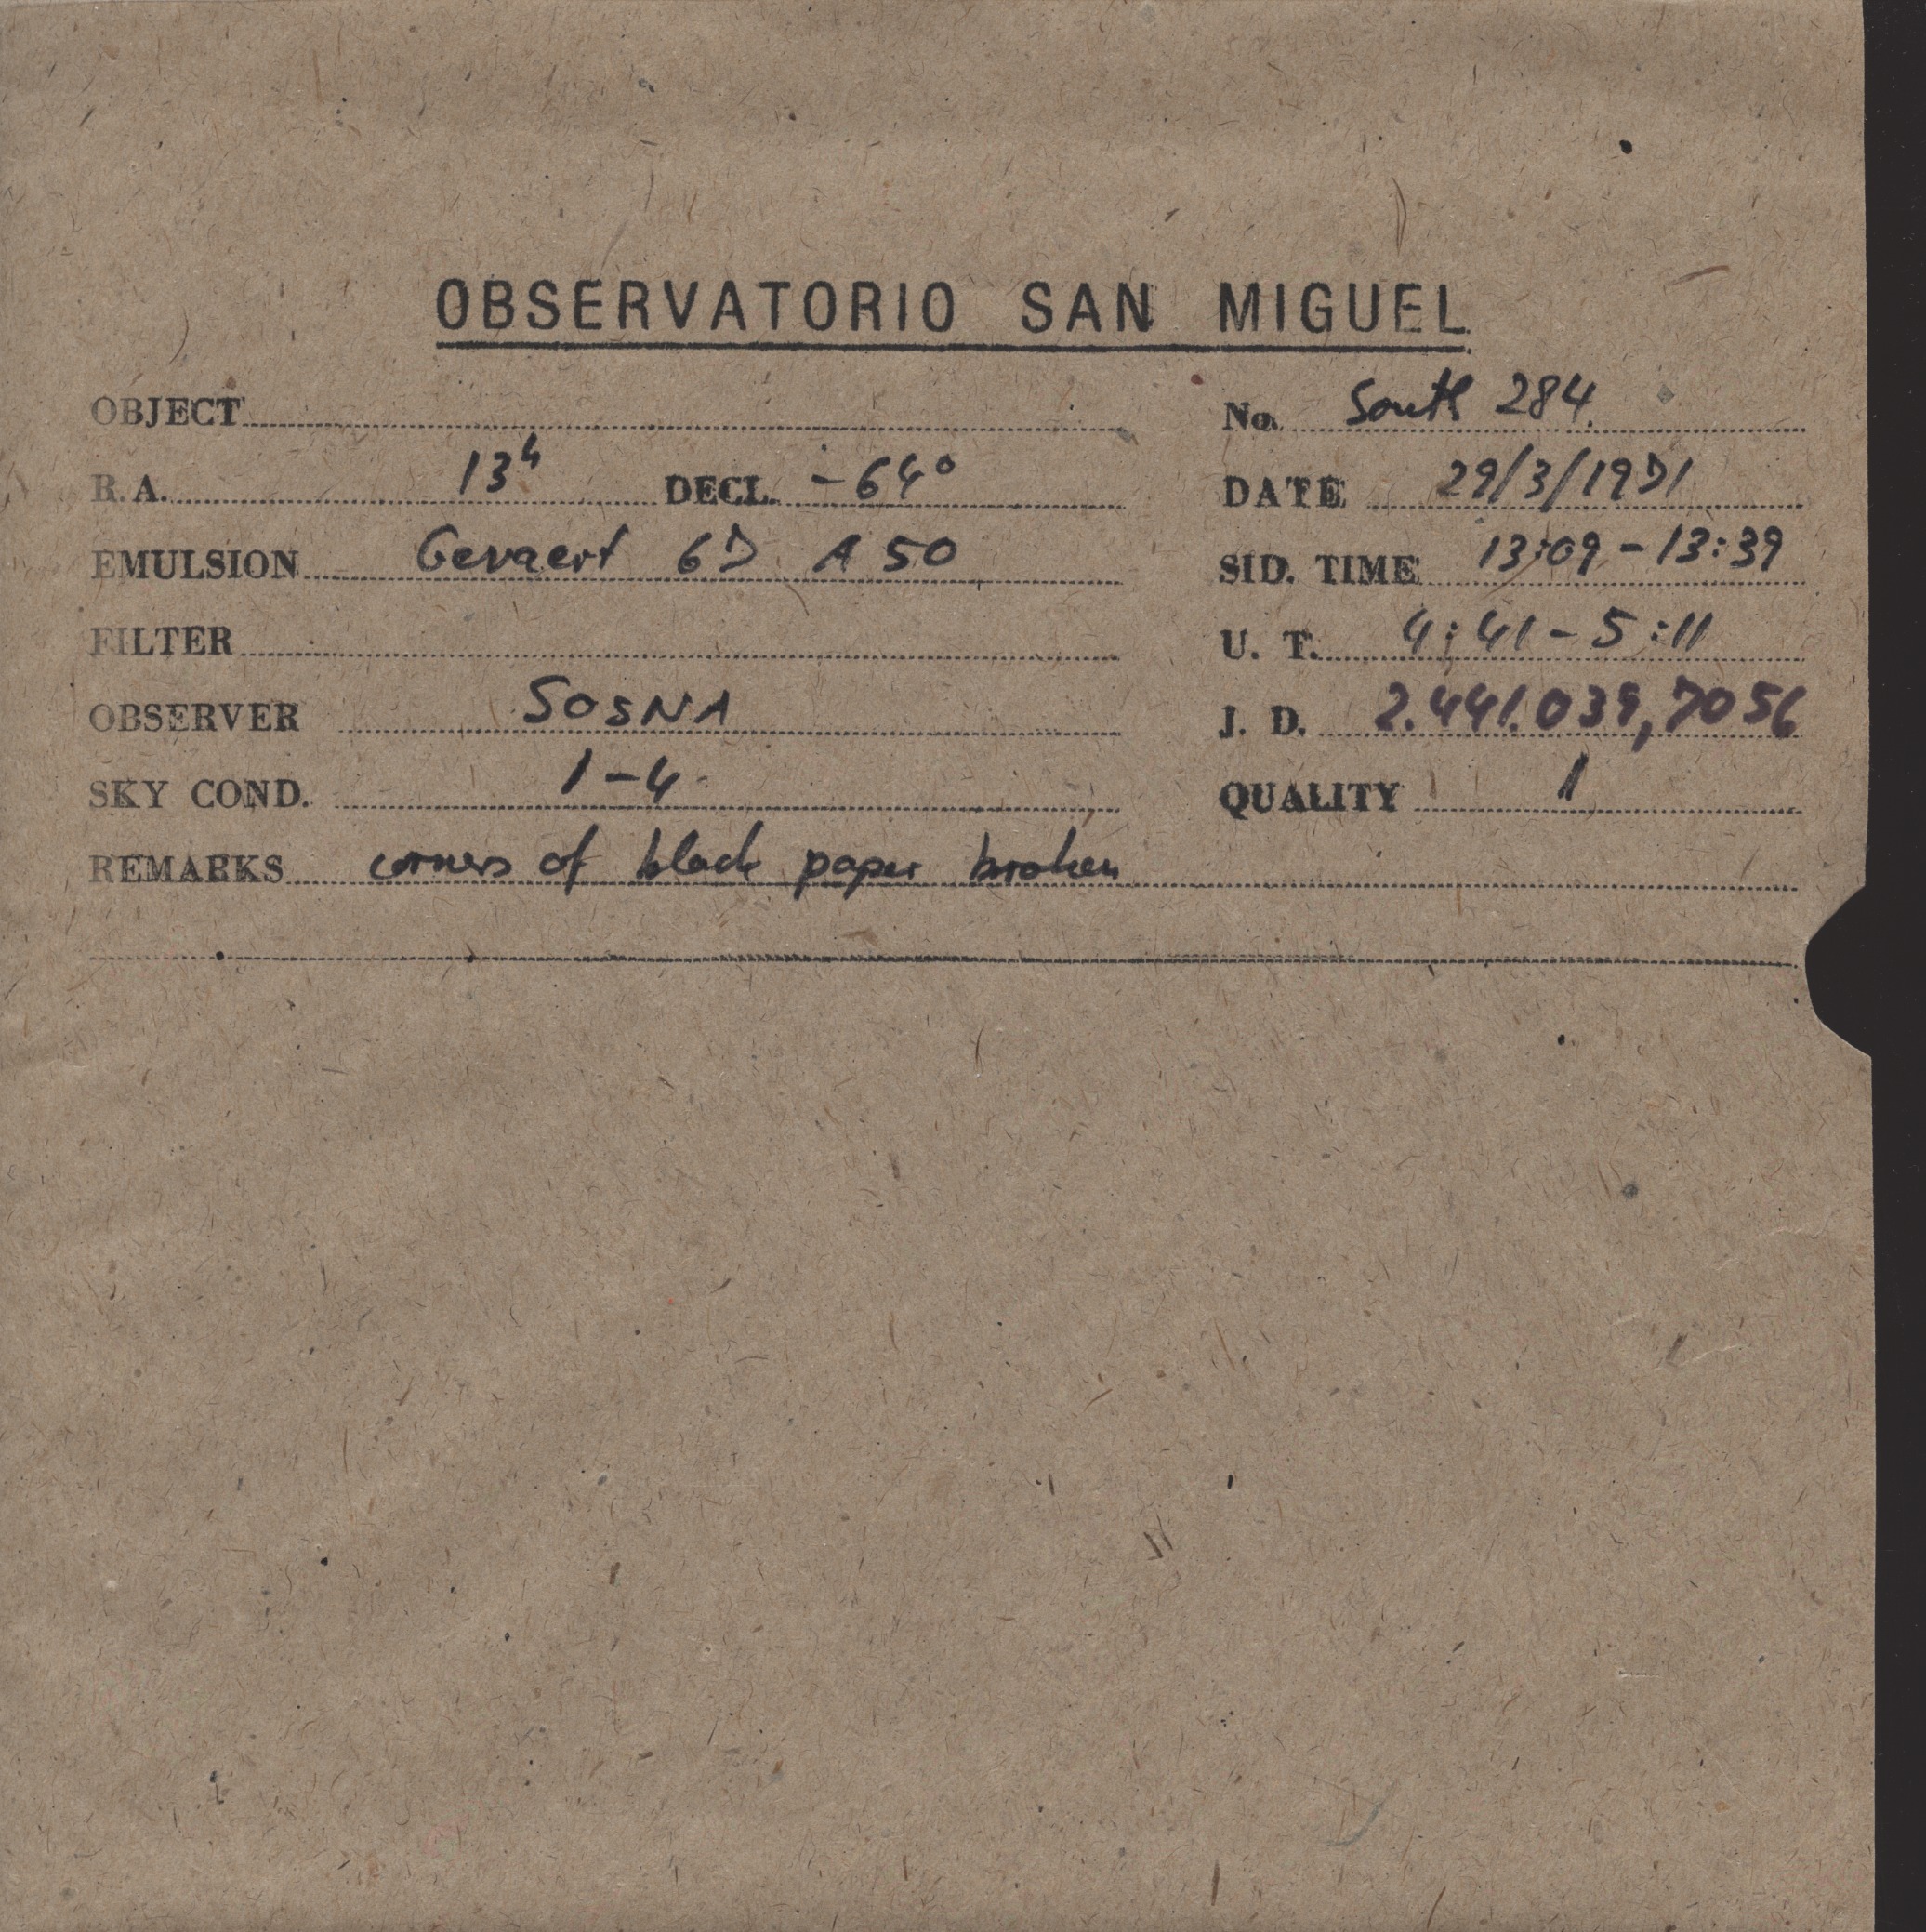 OBSERVATORIO SAN MIGUEL
OBJECT
No. South 284.
R. A. 13h DECL. -64°
DATE 29/3/1971
EMULSION Gevaert 6D A 50
SID. TIME 13:09 - 13:39
FILTER
U. T. 4:41 - 5:11
OBSERVER SOSNA
J. D. 2.441.039,7056
SKY COND. 1-4
QUALITY 1
REMARKS corners of black paper broken